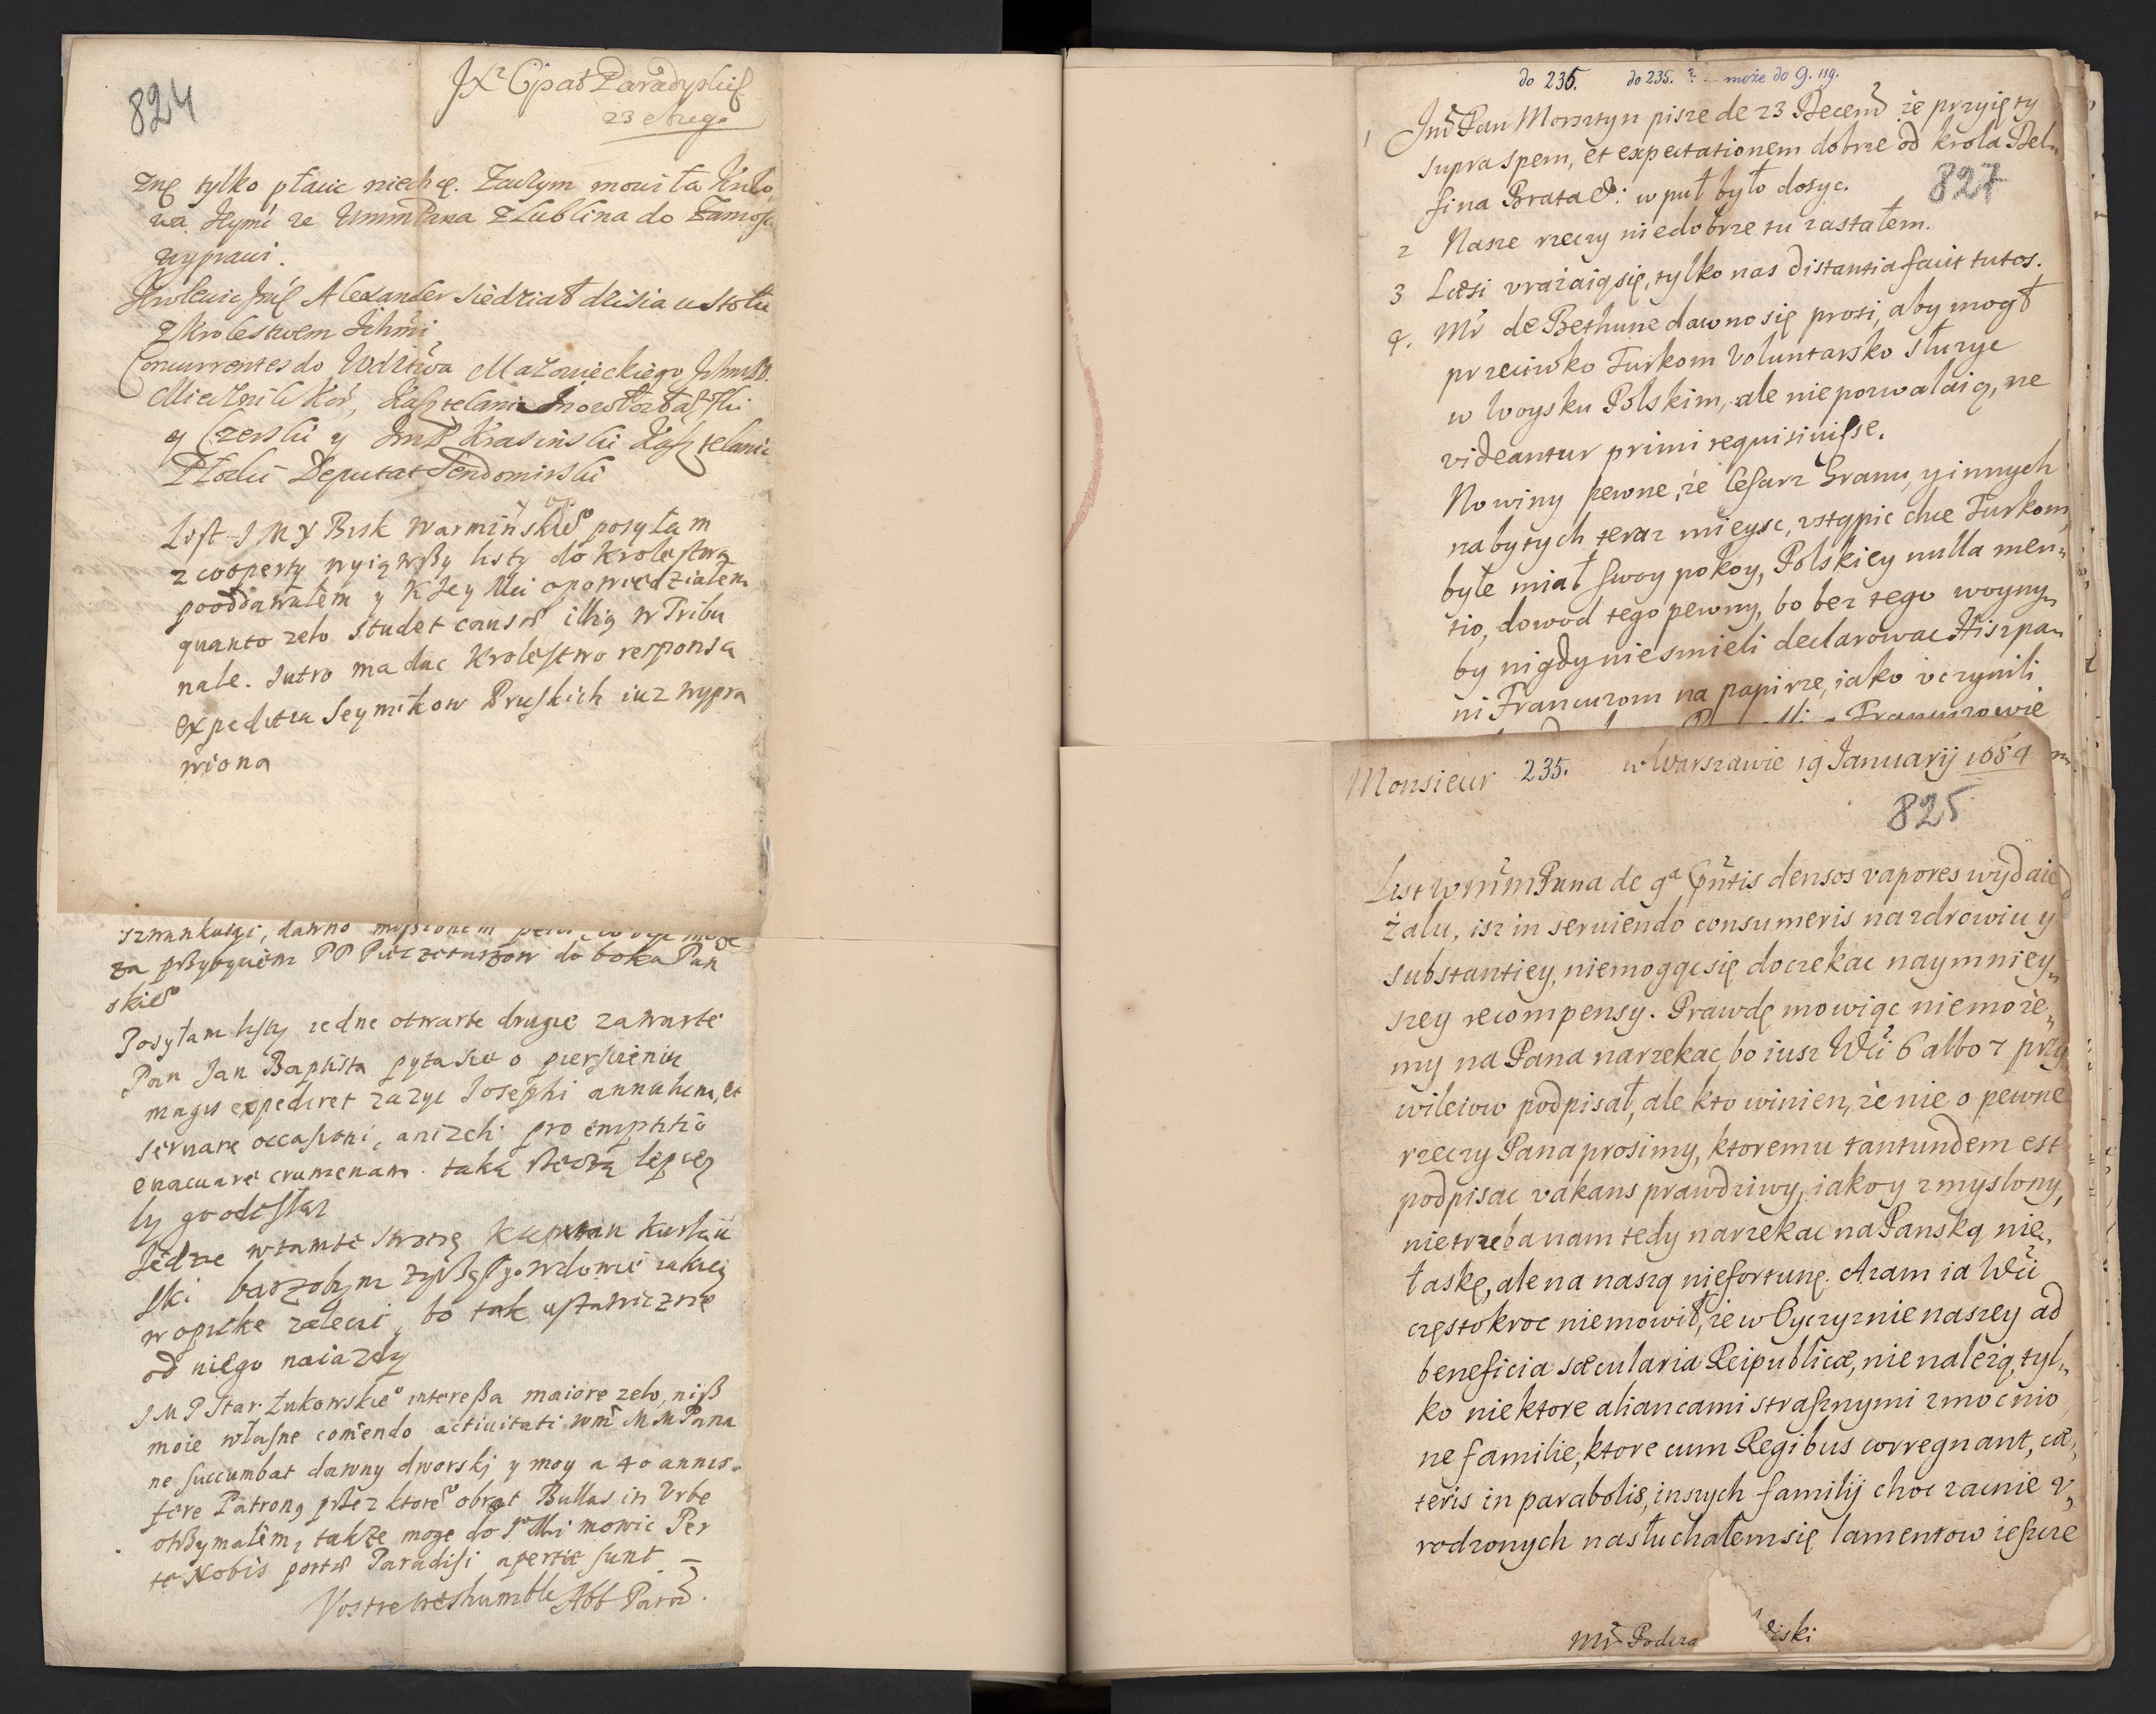 824
JX Opat Paradyski
23 Maja
znę tylko płacic niechcę. Zaczym mowiła Krolo
wa Jeymć ze WmmPana z Lublina do Zamosc
wyprawi.
Krolewic Jmć Alexander siedział dzisia u stołu
z Krolestwem Ichmć
Concurrentes do Wodztwa Mazowieckiego
Miecznik Kor,
y Czerski y Krasinski Kasztelanic
Płocki Deputat Sendomirski
List J M X Bisk Warmińskie⁰ posyłam
z cooperty wyiąwszy listy do Krolestwa
pooddawałem y K Jey Mci opowiedziałem
quanto zelo studet causæ illią w Tribu
nale. Jutro ma dac Krolestwo responsa
expeditia Seymikow Pruskich iuz wypra
wiona
szwankuiąi, dawno
za przybyciem PP Pieczetarzow do boku Pan
skie⁰
Posyłam listy iedne otwarte drugie zawarte
Pan Jan Baptista pyta sie o pierscieniu
magis expediret zazyc Josephi annulum, et
seruare occasioni, anizeli pro emptitio
enacuare crumenam. taką rzeczą lepiey
by
Jedzie w tamte strone Kapitan
ski barzobym go Wdowie
w opieke zaleca, bo tak ustawiczne
od niego naiazdy
J M P Star: Zukowskie⁰ interessa maiore zelo, niß
moie własne com̃endo actiuitati wm̃ M M Pana
ne succumbat dawny dworskj y moy a 40 annis
fere Patronq przez ktore⁰ obrot Bullas in Vrbe
otrzymałem, takze moge do Mci mowic Per
te Nobis portæ Paradisi apertæ sunt —
Vostre treshumble Abb Parad.
do 235. do 235. ? ... może do 9. 119.
1 Jmć Pan Morsztyn pisze de 23 Decemb że przyięty
supra spem, et expectationem dobrze od krola Del„
fina Brata &: w puł było dosyc.
827
2 Nasze rzeczy niedobrze tu zastałem.
3 Læsi vrażaią się, tylko nas distantia facit tutos.
4. Mr de Bethune dawno się prosi, aby mogł
przeciwko Turkom Voluntarsko słuzyc
w Woysku Polskim, ale nie pozwalaią, ne
videantur primi requisiuisse.
Nowiny pewne, że Cesarz Granu, y innych
nabytych teraz mieysc, vstąpic chce Turkom,
byle miał swoy pokoy, Polskiey nulla men„
tio, dowod tego pewny, bo bez tego woyny„
by nigdy niesmieli declarowac Hiszpa„
ni Francuzom na papirze, iako vczynili
Francuzowie
Monsieur 235. w Warszawie 19 Januarij 1684
825
List WmmPana de 9a Cuntis densos vapores wydaie
żalu, isz in seruiendo consumeris na zdrowiu y
substantiey, niemogąc się doczekac naymniey„
szey recompensy. Prawdę mowiąc niemoże„
my na Pana narzekac, bo iusz Wci 6 albo 7 przy
wileiow podpisał, ale kto winien, że nie o pewne
rzeczy Pana prosimy, ktoremu tantundem est
podpisac vakans prawdziwy, iako y zmyslony,
nie trzeba nam tedy narzekac na Panską nie„
łaskę, ale na naszą niefortunę. Azam ia Wci
częstokroc niemowił, że w Oyczyznie naszey ad
beneficia sæcularia Reipublicæ, nie należą, tyl„
ko niektore aliancami strasznymi zmocnio
ne familie, ktore cum Regibus corregnant, cæ„
teris in parabolis, inszych familij choc zacnie v„
rodzonych nasłuchałem się lamentow ieszcze
Mr Podcza